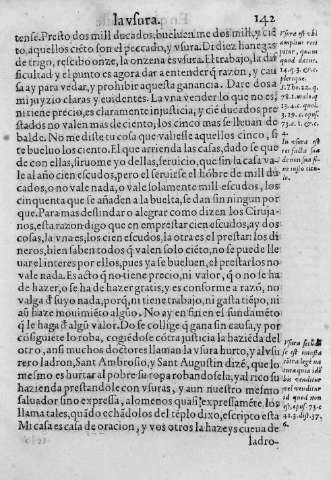 la vsura. 142
tense. Presto dos mil ducados, bueluen me dos mil, y ciē
to, aquellos ciēto son el peccado, y vsura. Di diez hanegas
de trigo, rescibo onze, la onzena es vsura. El trabajo, la dif
ficultad y el punto es agora dar a entender q̄ razon, y cau
sa ay para vedar, y prohibir aquesta ganancia. Dare dos a
mi juyzio claras y euidentes. La vna vender lo que no es,
ni tiene precio, es claramente injusticia, y ciē ducados pre
stados no valen mas de ciento, los cinco mas se lleuan de
balde. No me diste tu cosa que valiesse aquellos cinco, si
te bueluo los ciento. El que arrienda las casas, dado se que
de con ellas, siruome yo dellas, seruicio, que sin la casa va-
le al año cien escudos, pero el seruirse el hōbre de mill du
cados, o no vale nada, o vale solamente mill escudos, los
cinquenta que se añaden a la buelta, se dan sin ningun por
que. Para mas deslindar o alegrar como dizen los Ciruja-
nos, esta razon digo que en emprestar cien escudos, ay dos
cosas, la vna es, los cien escudos, la otra es el prestar los di
neros, bien saben todos q̄ valen solo ciēto, no se puede lle
uar el interes por ellos, pues ya se bueluen, el prestarlos no
vale nada. Es acto q̄ no tiene precio, ni valor, q̄ o no se ha
de hazer, o se ha de hazer gratis, y es conforme a razō, no
valga d̄ suyo nada, porq̄, ni tiene trabajo, ni gasta tiēpo, ni
aū haze mouimiēto algūo. No ay en fin en el fundamēto
q̄ le haga d̄ algū valor. Do se collige q̄ gana sin causa, y por
cōsiguiēte lo roba, cogiēdose cōtra justicia la haziēda del
otro, ansi muchos doctores llaman la vsura hurto, y al vsu
rero ladron, Sant Ambrosio, y Sant Augustin dizē, que lo
mesmo es hurtar al pobre su ropa robandosela, y al rico su
hazienda prestandole con vsuras, y aun nuestro mesmo
saluador sino expressa, alomenos quasi expressamēte, los
llama tales, quādo echādolos del tēplo dixo, escripto esta
Mi casa es casa de oracion, y vos otros la hazeys cueua de
ladro-
Vsura est vbi
amplius req̄
ritur, quam
quod datur.
14. q. 3. & c.
Vsura
se est iniusta